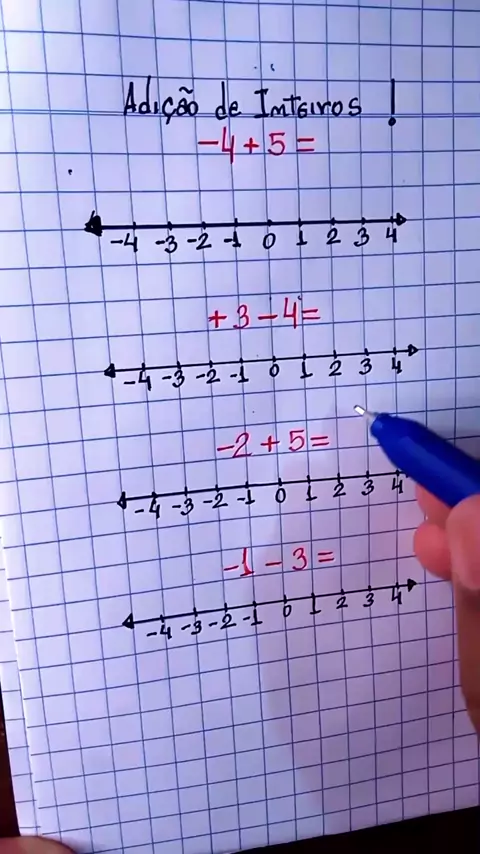 Adição de Inteiros !
-4+5=
-4 -3 -2 -1 0 1 2 3 4
+3-4=
-4 -3 -2 -1 0 1 2 3 4
-2+5=
-4 -3 -2 -1 0 1 2 3 4
-1-3=
-4 -3 -2 -1 0 1 2 3 4